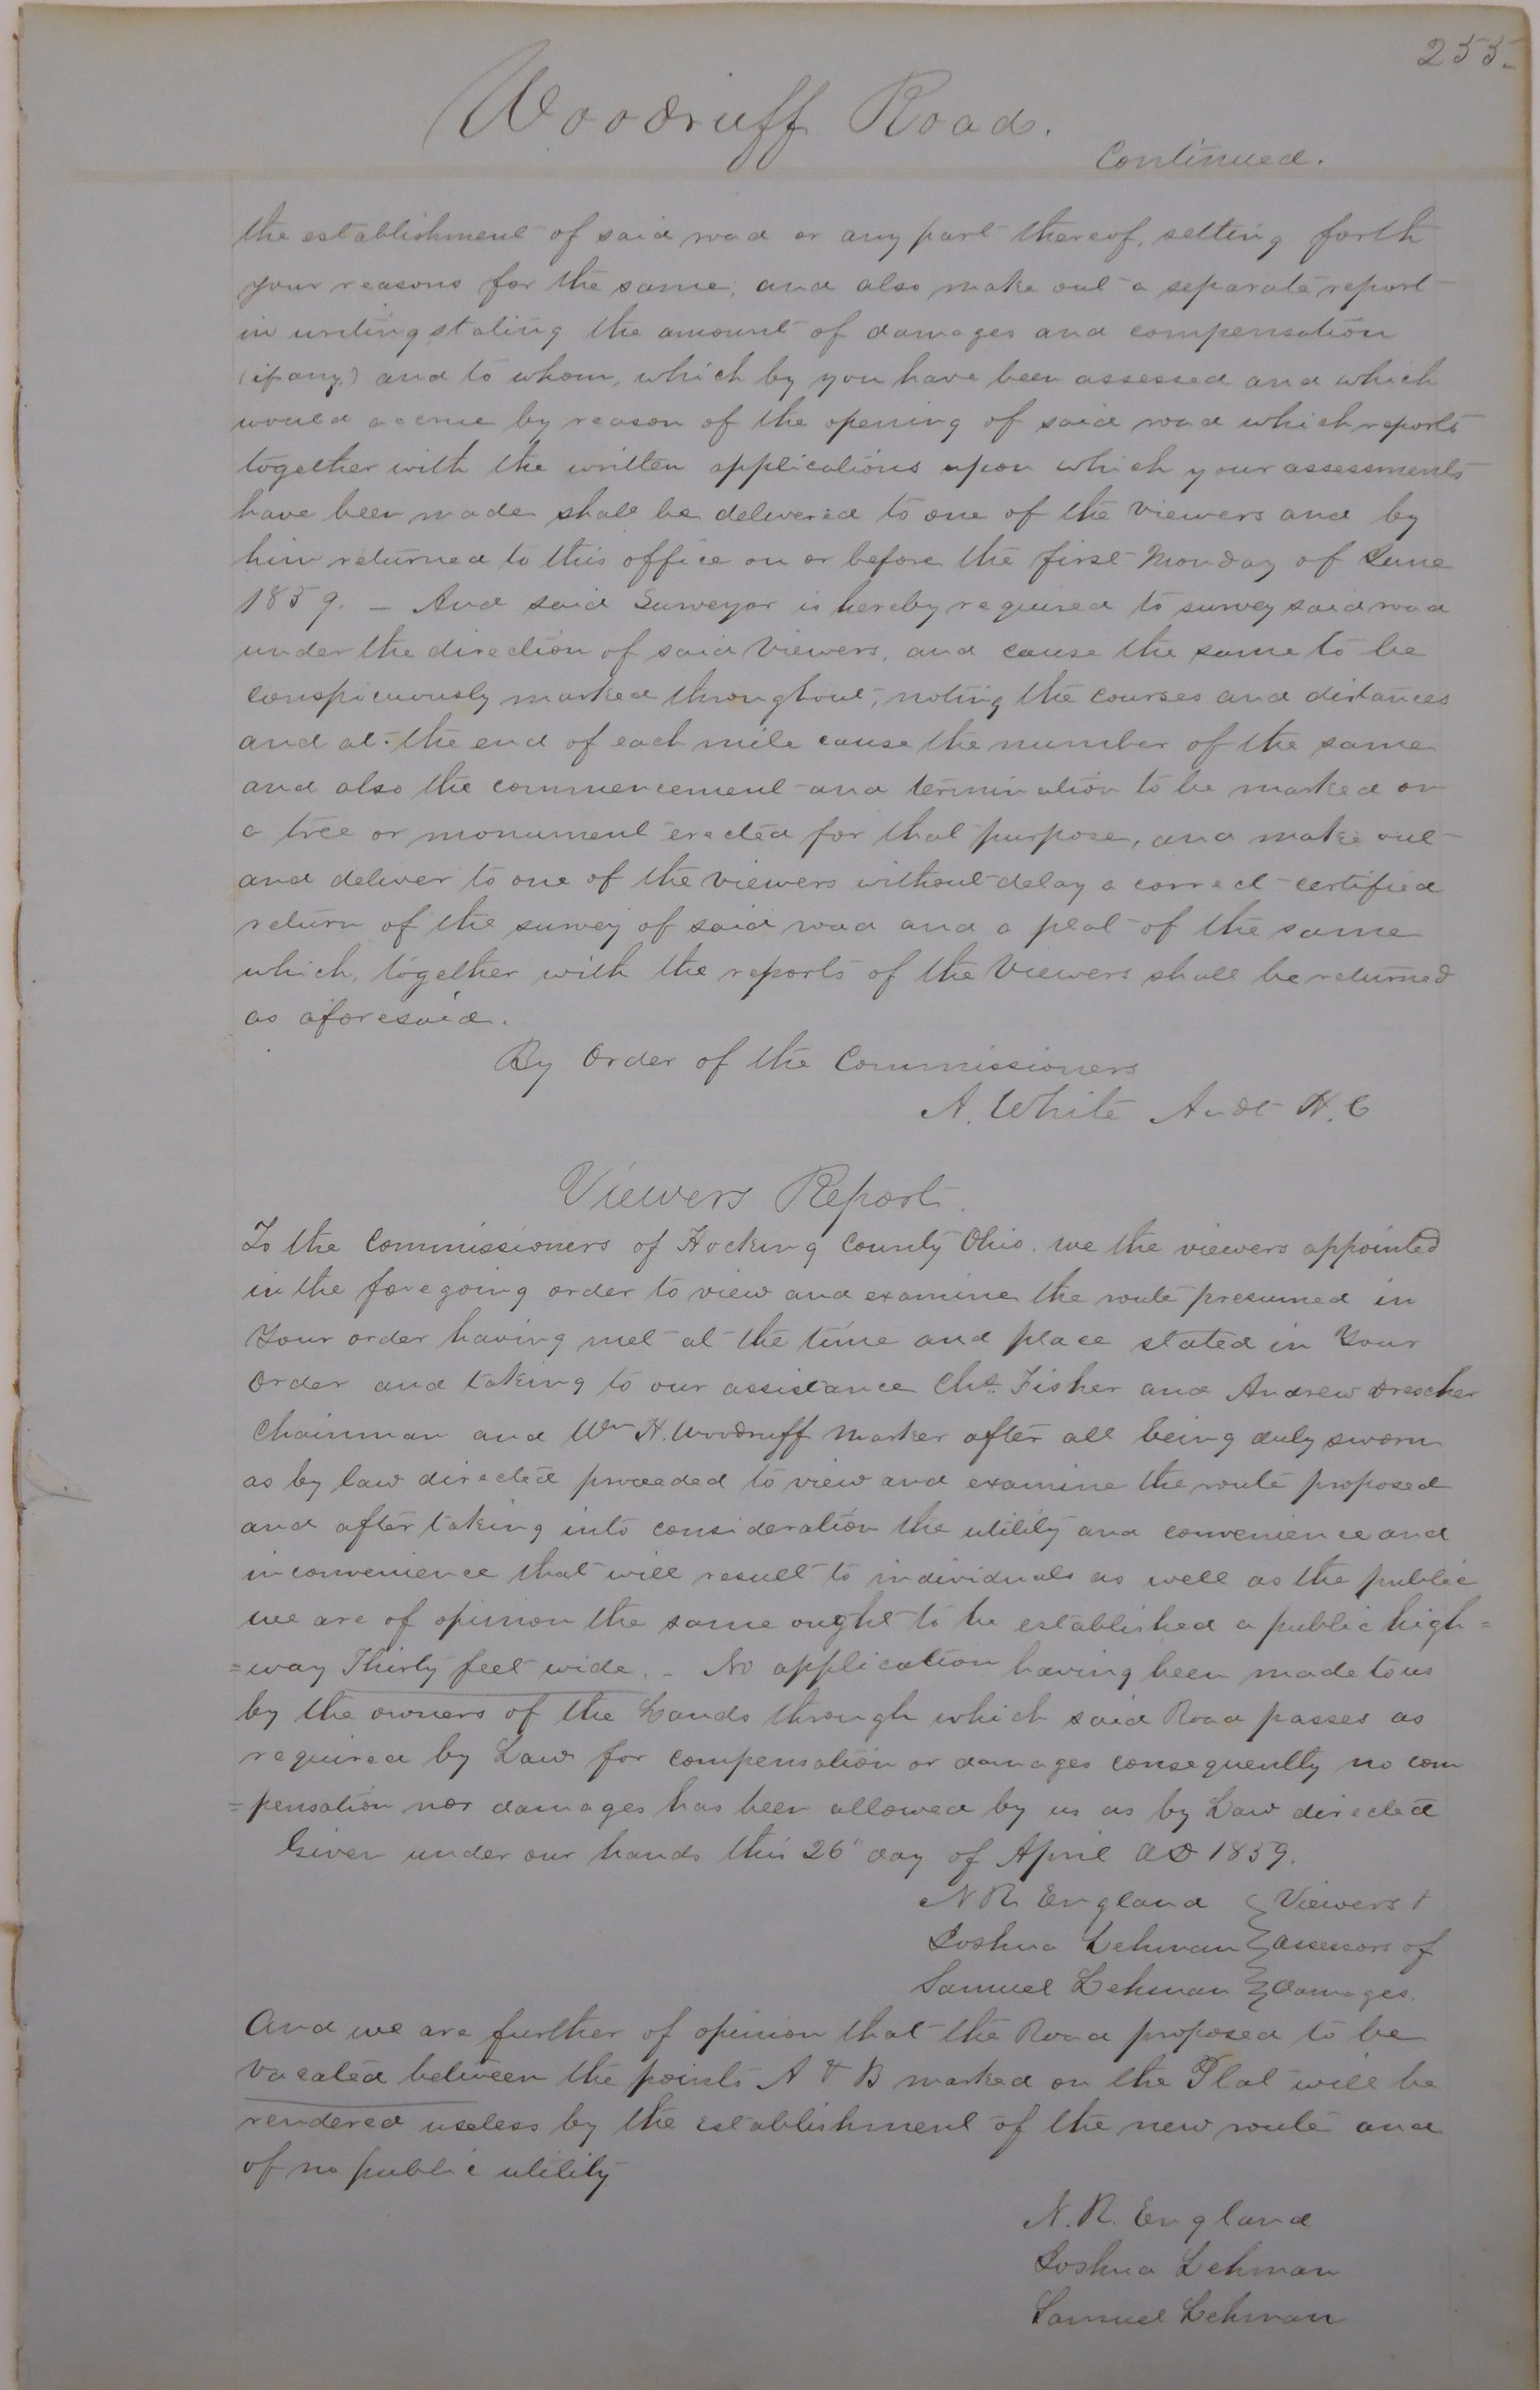 255
Woodruff Road.
Continued.
the establishment of said road or any part thereof, setting forth
your reasons for the same, and also make out a separate report
in writing stating the amount of damages and compensation
(if any) and to whom, which by you have been assessed and which
would accrue by reason of the opening of said road which reports
together with the written applications upon which your assessments
have been made shall be delivered to one of the Viewers and by
him returned to this office on or before the first Monday of June
1859. – And said Surveyor is hereby required to survey said road
under the direction of said Viewers, and cause the same to be
conspicuously marked throughout, noting the courses and distances
and at the end of each mile cause the number of the same
and also the commencement and termination to be marked on
a tree or monument erected for that purpose, and make out
and deliver to one of the Viewers without delay a correct certified
return of the survey of said road and a plat of the same
which, together with the reports of the Viewers shall be returned
as aforesaid.
By Order of the Commissioners
A. White Audt H. C
Viewers Report.
To the Commissioners of Hocking County Ohio. we the viewers appointed
in the foregoing order to view and examine the route presumed in
Your order having met at the time and place stated in Your
Order and taking to our assistance Chs. Fisher and Andrew Drescher
Chainman and Wm H. Woodruff Marker after all being duly sworn
as by law directed proceeded to view and examine the route proposed
and after taking into consideration the utility and convenience and
inconvenience that will result to individuals as well as the public
we are of opinion the same ought to be established a public high=
=way Thirty feet wide. – No application having been made to us
by the owners of the Lands through which said Road passes as
required by Law for compensation or damages consequently no com
=pensation nor damages has been allowed by us as by Law directed
Given under our hands this 26 day of April AD 1859.
N R England } Viewers &
Joshua Lehman } assessors of
Samuel Lehman } damages.
And we are further of opinion that the Road proposed to be
vacated between the points A & B marked on the Plat will be
rendered useless by the establishment of the new route and
of no public utility
N. R. England
Joshua Lehman
Samuel Lehman